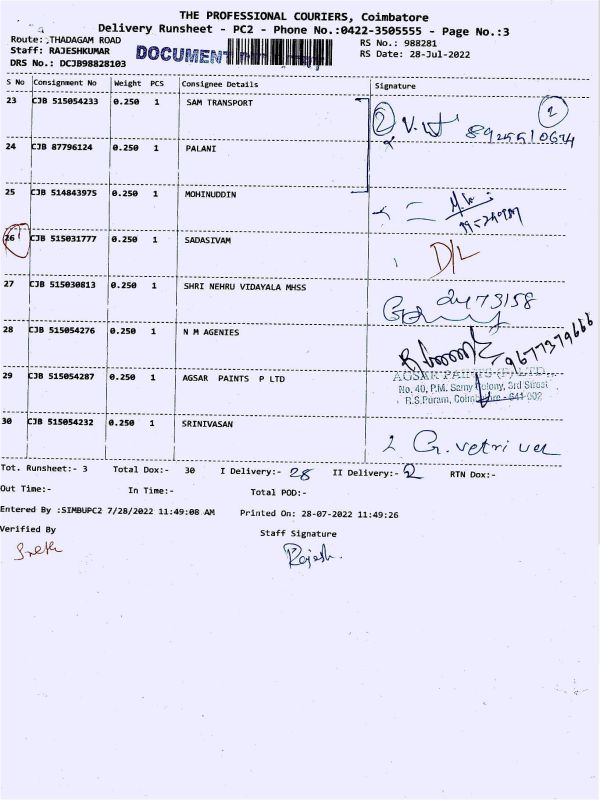 THE PROFESSIONAL COURIERS, Coimbatore
Delivery Runsheet - PC2 - Phone No.:0422-3505555 - Page No.:3
Route: THADAGAM ROAD
RS No.: 988281
Staff: RAJESHKUMAR
DOCUMENT
RS Date: 28-Jul-2022
DRS No.: DCJB98828103
S No Consignment No Weight PCS Consignee Details Signature
23 CJB 515054233 0.250 1 SAM TRANSPORT
2 8925510674 2
24 CJB 87796124 0.250 1 PALANI
25 CJB 514843975 0.250 1 MOHINUDDIN
26 CJB 515031777 0.250 1 SADASIVAM
D/L
27 CJB 515030813 0.250 1 SHRI NEHRU VIDAYALA MHSS
2473158
28 CJB 515054276 0.250 1 N M AGENIES
9677379666
29 CJB 515054287 0.250 1 AGSAR PAINTS P LTD
AGSAR PAINTS (P) LTD.,
No. 40, P.M. Samy Colony, 3rd Street
R.S.Puram, Coimbatore - 641 002
30 CJB 515054232 0.250 1 SRINIVASAN
G. vetrivel
Tot. Runsheet:- 3 Total Dox:- 30 I Delivery:- 28 II Delivery:- 2 RTN Dox:-
Out Time:- In Time:- Total POD:-
Entered By :SIMBUPC2 7/28/2022 11:49:08 AM Printed On: 28-07-2022 11:49:26
Verified By Staff Signature
Rajesh.